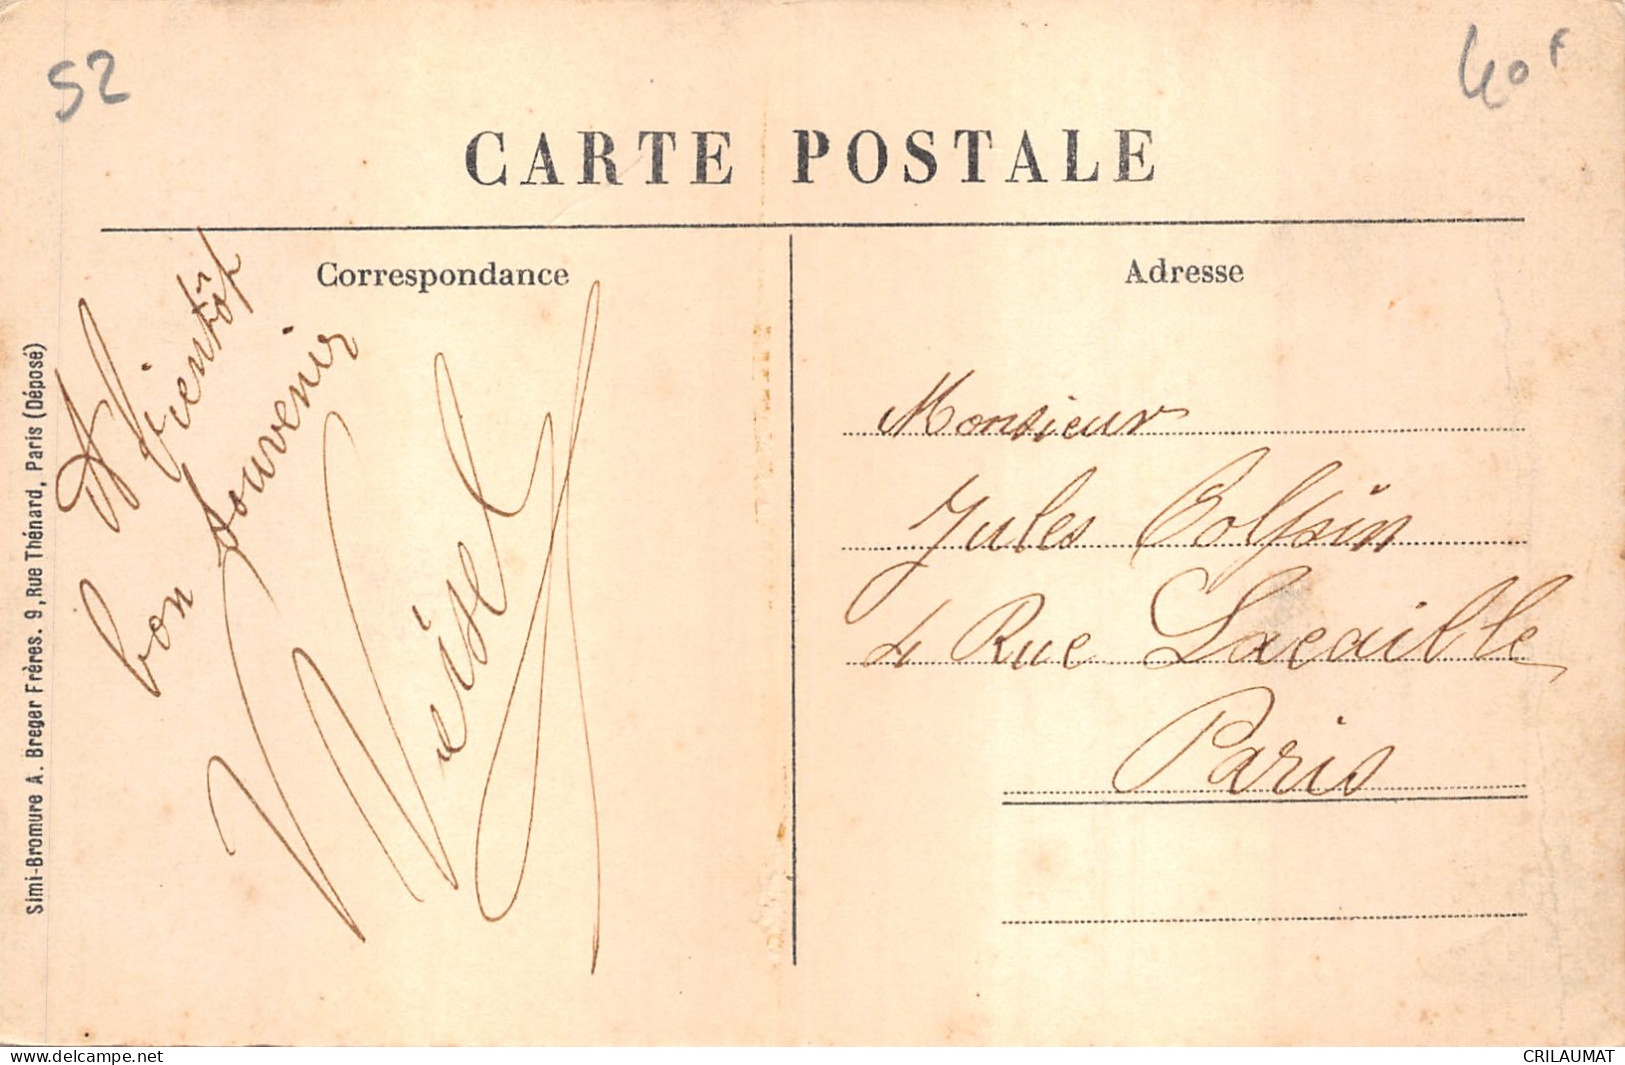 52
40F
CARTE POSTALE
Correspondance
Adresse
A bientôt
bon souvenir
Monsieur
Jules
4 Rue Lacaille
Paris
Simi-Bromure A. Breger Frères. 9, Rue Thénard, Paris (Déposé)
https://www.delcampe.net
CRILAUMAT